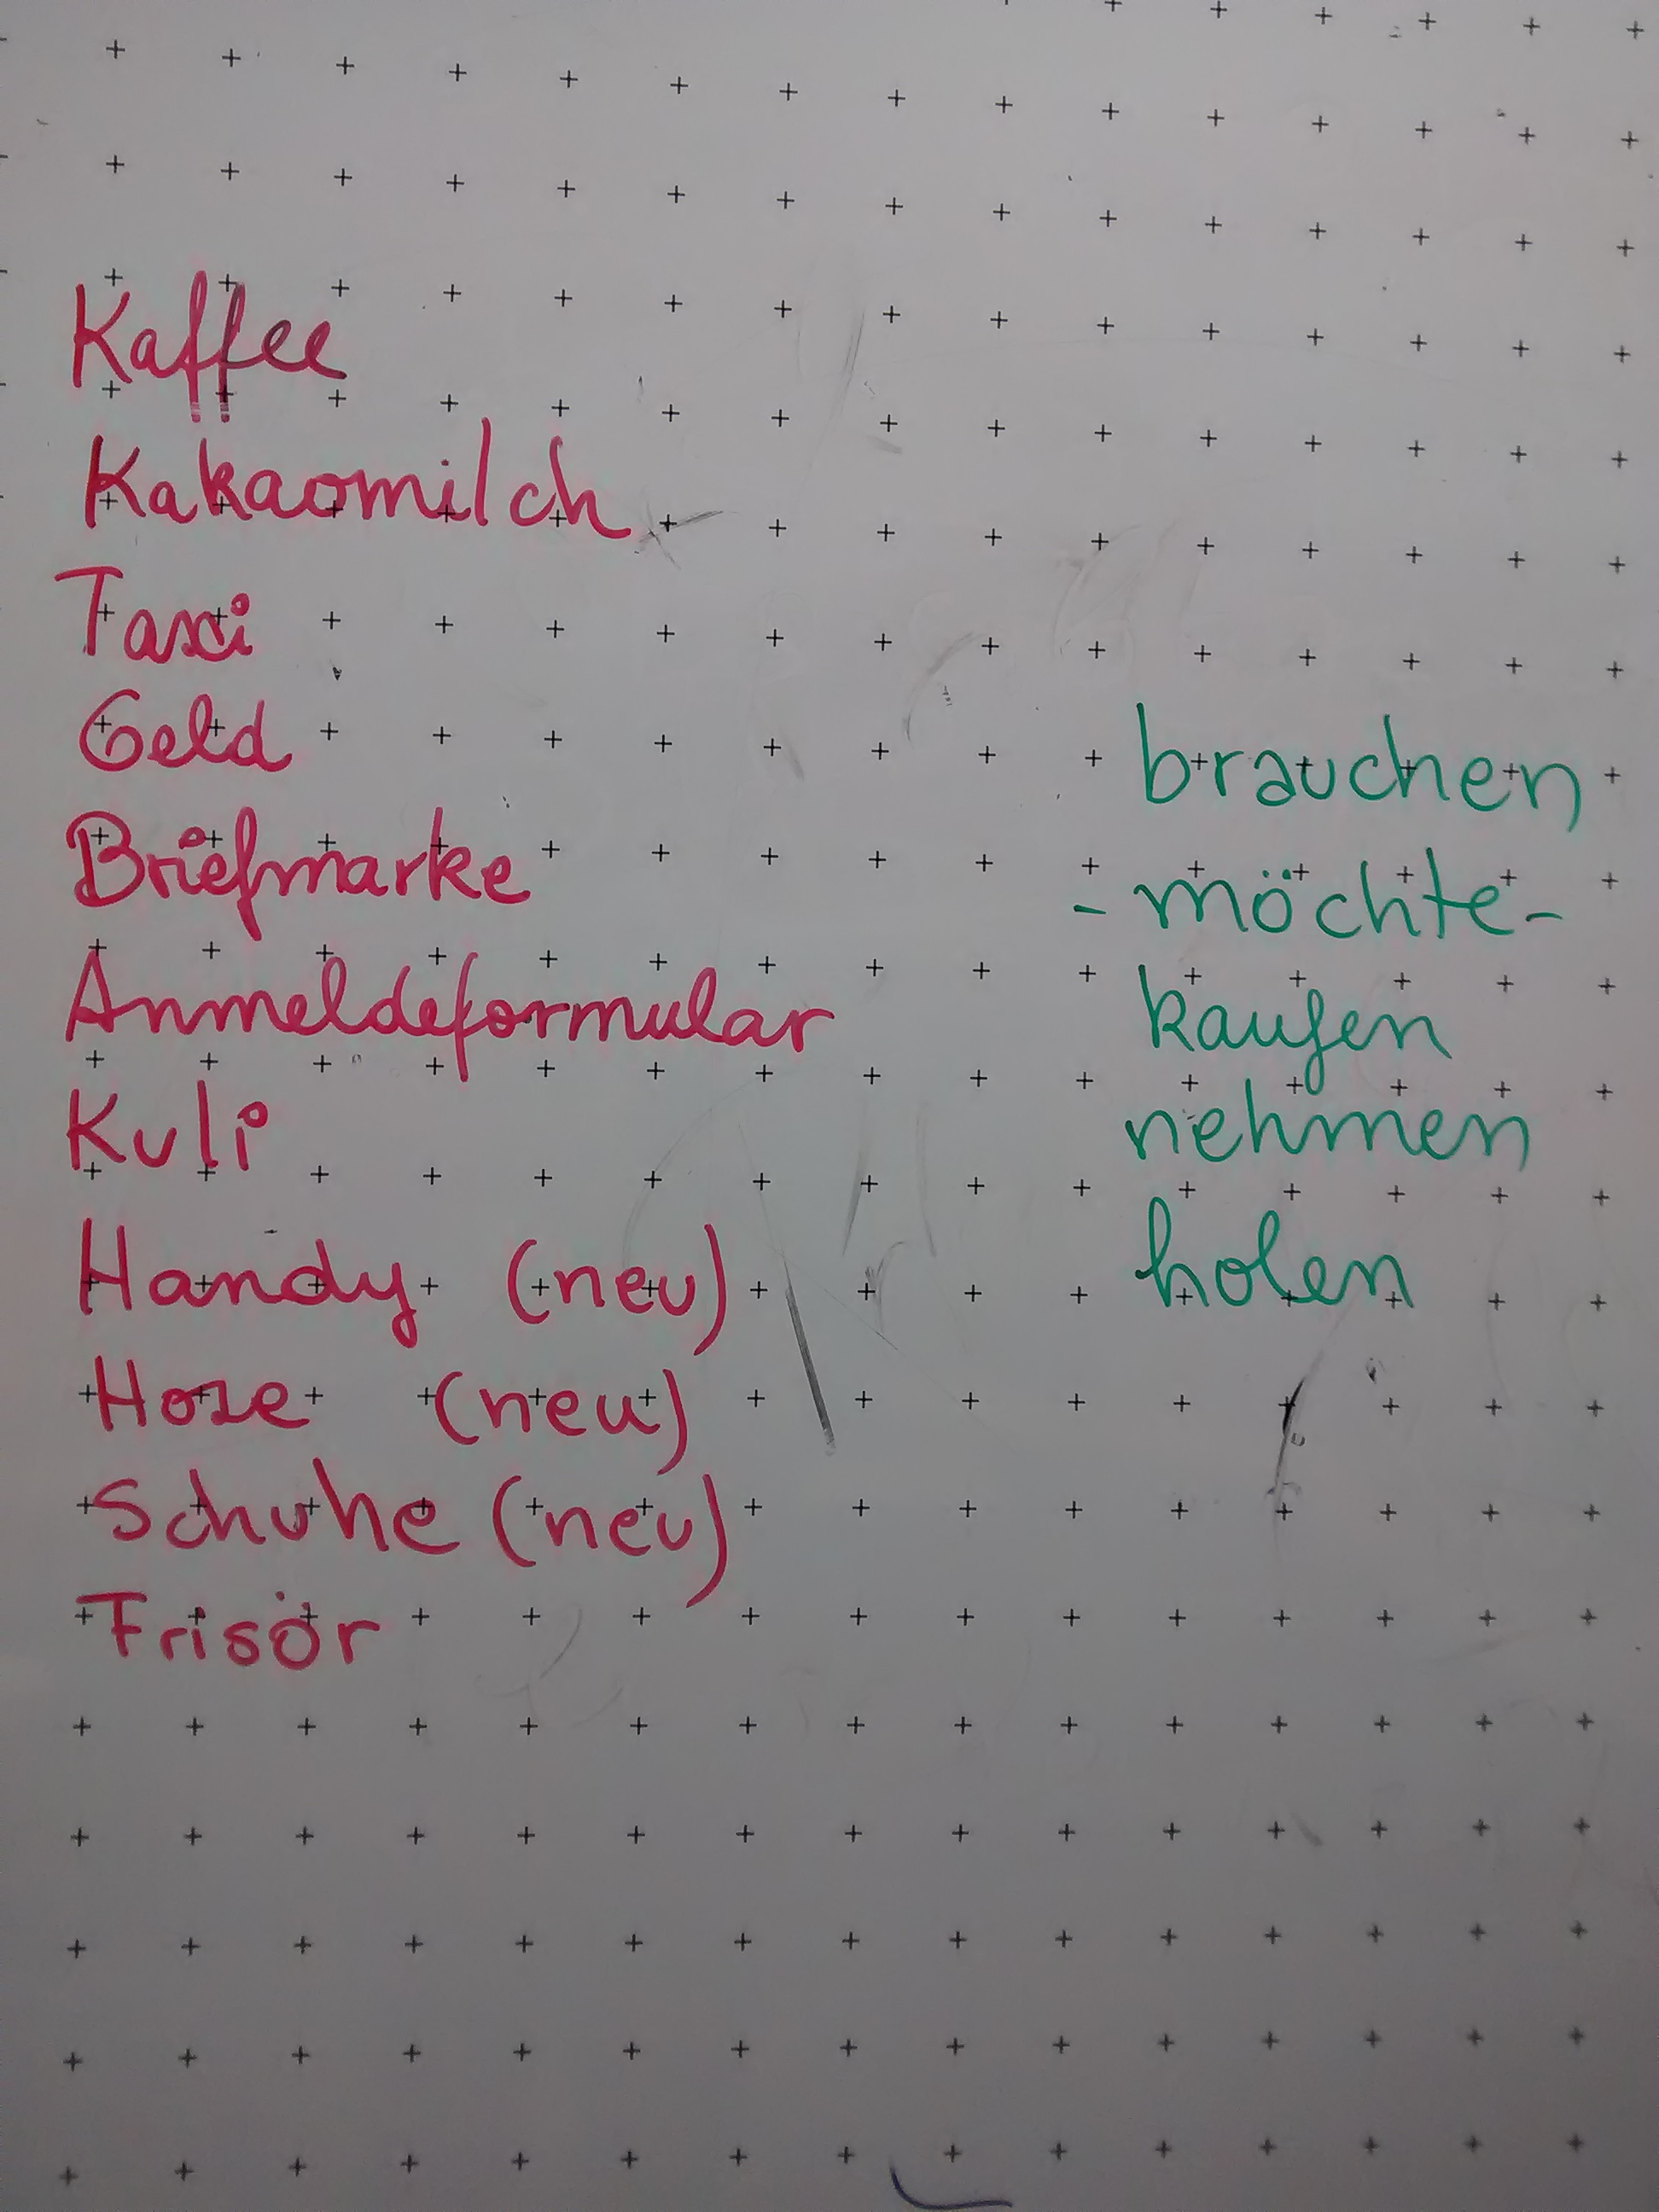 Kaffee
Kakaomilch
Taxi
Geld
Briefmarke
Anmeldeformular
Kuli
Handy (neu)
Hose (neu)
Schuhe (neu)
Frisör
brauchen
- möchte -
kaufen
nehmen
holen